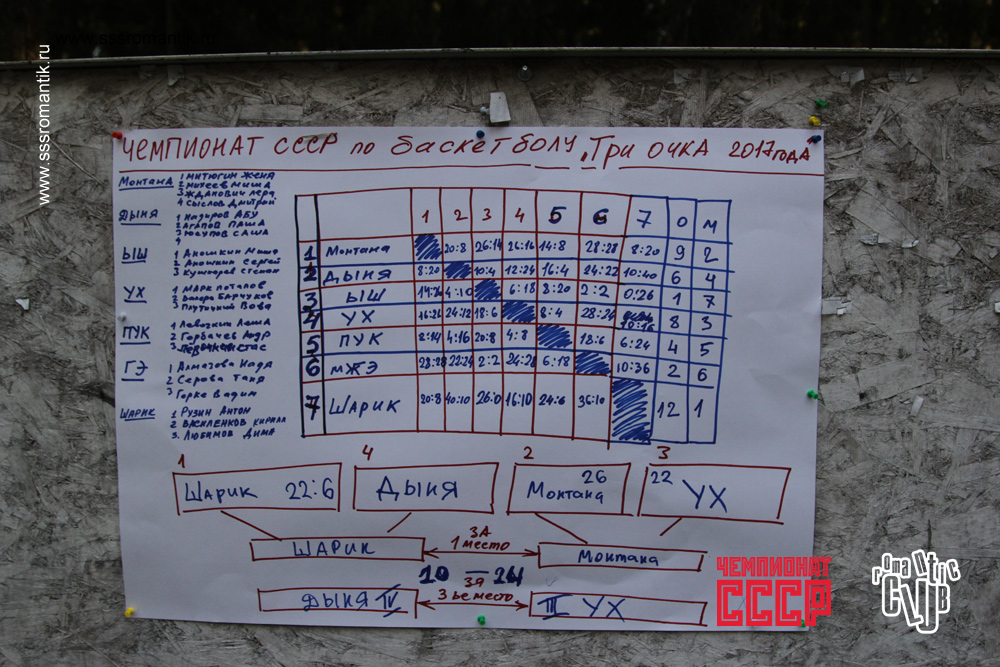 www.sssromantik.ru
www.sssromantik.ru
ЧЕМПИОНАТ СССР по баскетболу, Три очка 2017 года
Монтана
1 Митюгин Женя
2 Михеев Миша
3 Жданович Лера
4 Сыслов Дмитрий
Дыня
1 Надиров Абу
2 Агапов Паша
3 Юсупов Саша
4
ЫШ
1 Аношкин Миша
2 Аношкин Сергей
3 Степан
УХ
1 Марк Потапов
2 Валера Барчуков
3 Вова
ПУК
1 Леша
2 Горбачев
3 Стас
ГЭ
1 Алмазова Надя
2 Серова Таня
3 Горке Вадим
Шарик
1 Рузин Антон
2 Василенков Кирилл
3. Любимов Дима
1 2 3 4 5 6 7 О М
1 Монтана 20:8 26:14 26:16 14:8 28:28 8:20 9 2
2 Дыня 8:20 10:4 12:24 16:4 24:22 10:40 6 4
3 ЫШ 14:26 4:10 6:18 8:20 2:2 0:26 1 7
4 УХ 16:26 24:12 18:6 8:4 28:24 10:16 8 3
5 ПУК 8:14 4:16 20:8 4:8 18:6 6:24 4 5
6 МЖЭ 28:28 22:24 2:2 24:28 6:18 10:36 2 6
7 Шарик 20:8 40:10 26:0 16:10 24:6 36:10 12 1
1 4 2 3
Шарик 22:6 Дыня Монтана 26 22 УХ
ШАРИК ЗА 1 место Монтана
10 — 24
Дыня IV ЗА 3 ье место III УХ
ЧЕМПИОНАТ
СССР
romantic
CLUB